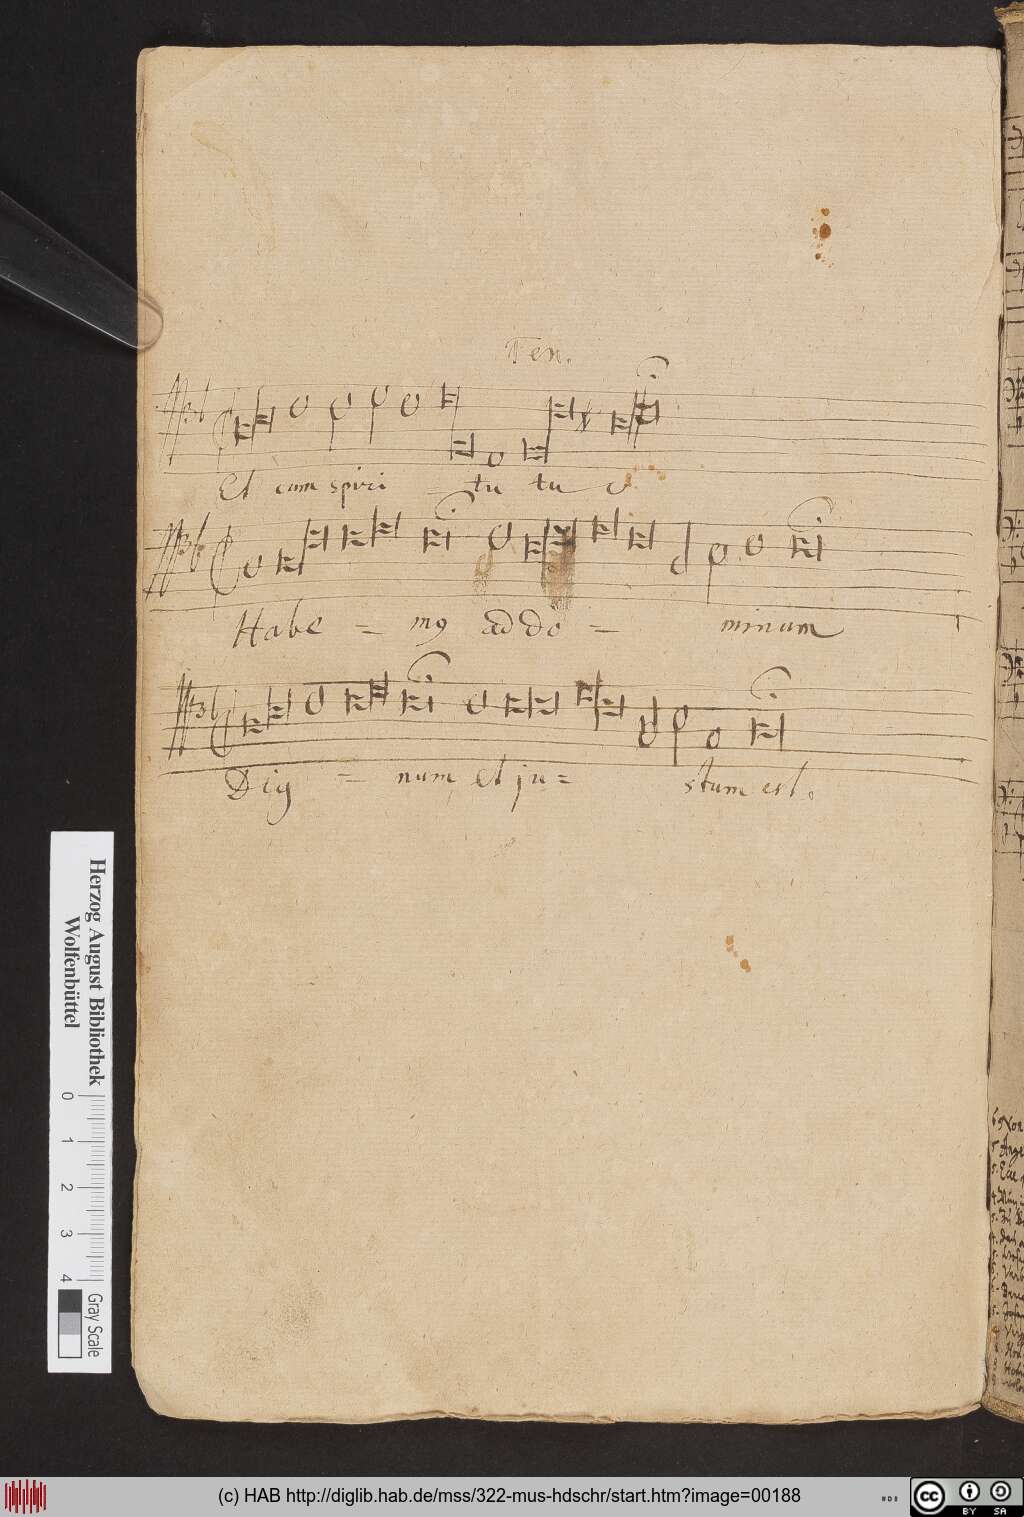 Ten.
Et cum spiri - tu tu o
Habe = mꝰ ad do = minum
Dig = num et ju = stum est.
Herzog August Bibliothek
Wolfenbüttel
0 1 2 3 4
Gray Scale
(c) HAB http://diglib.hab.de/mss/322-mus-hdschr/start.htm?image=00188
cc BY SA